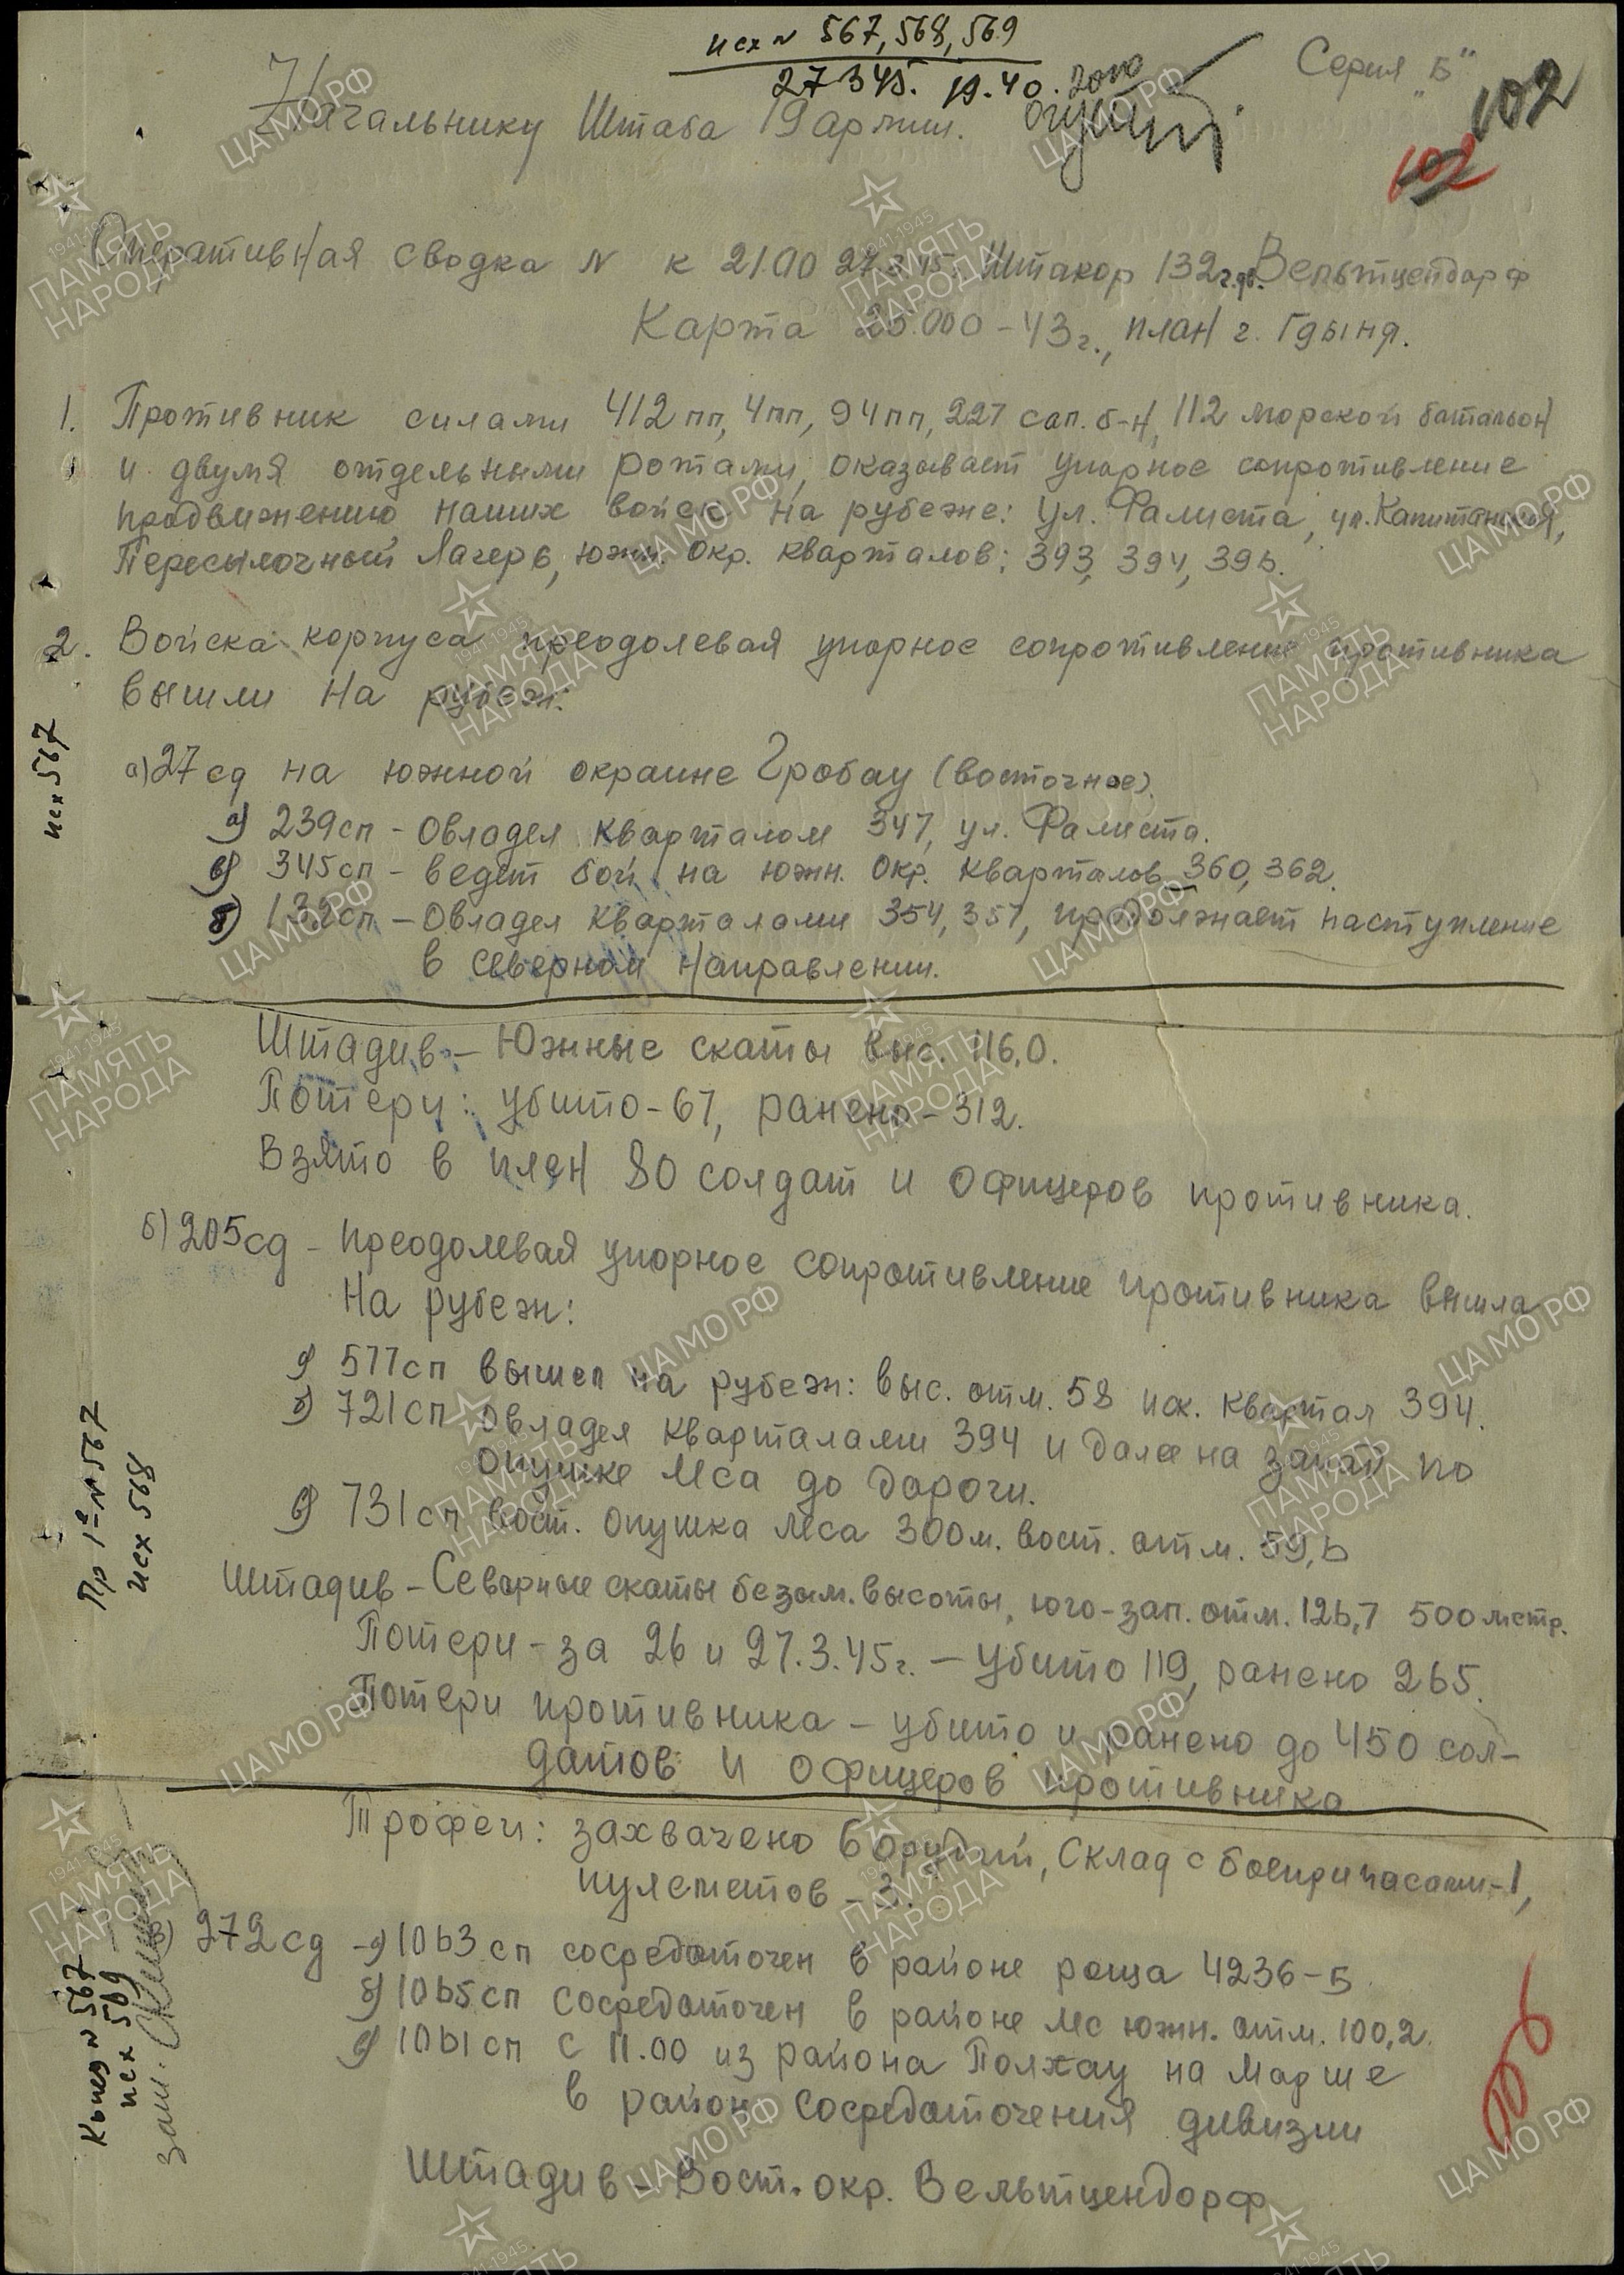 исх N 567, 568, 569
27 3 45. 19.40.
Серия "Б"
102
102
Начальнику Штаба 19 армии.
Оперативная сводка N к 21.00 27.3.45. Штакор 132 Вельтцендорф
Карта 25.000 - 43 г., план г. Гдыня.
1. Противник силами 412 пп, 4 пп, 94 пп, 227 сап. б-н, 112 морской батальон
и двумя отдельными ротами, оказывает упорное сопротивление
продвижению наших войск на рубеже: ул. Фалиста, ул. Капитанская,
Пересылочный Лагерь, южн. окр. кварталов: 393, 394, 396.
2. Войска корпуса преодолевая упорное сопротивление противника
вышли на рубеж:
а) 27 сд на южной окраине Гробау (восточное).
а) 239 сп - овладел кварталом 347, ул. Фалиста.
в) 345 сп - ведет бой на южн. окр. кварталов 360, 362.
б) 132 сп - овладел кварталами 354, 357, продолжает наступление
в северном направлении.
исх 567
Штадив - Южные скаты выс. 116,0.
Потери: убито - 67, ранено - 312.
Взято в плен 80 солдат и офицеров противника.
б) 205 сд - преодолевая упорное сопротивление противника вышла
на рубеж:
а) 577 сп вышел на рубеж: выс. отм. 58 иск. квартал 394.
б) 721 сп овладел кварталами 394 и далее на запад по
опушке леса до дороги.
в) 731 сп вост. опушка леса 300 м. вост. отм. 59,6
Штадив - Северные скаты безым. высоты, юго-зап. отм. 126,7 500 метр.
Потери - за 26 и 27.3.45 г. - убито 119, ранено 265.
Потери противника - убито и ранено до 450 сол-
датов и офицеров противника
Пр 1е N 567
исх 568
Трофеи: захвачено 6 орудий, Склад с боеприпасами - 1,
пулеметов - 3.
в) 272 сд - а) 1063 сп сосредоточен в районе роща 4236-Б
б) 1065 сп сосредоточен в районе лес южн. отм. 100,2.
в) 1061 сп с 11.00 из района Полхау на марше
в район сосредоточения дивизии
Штадив - Вост. окр. Вельтцендорф
Конец N 567
исх 569